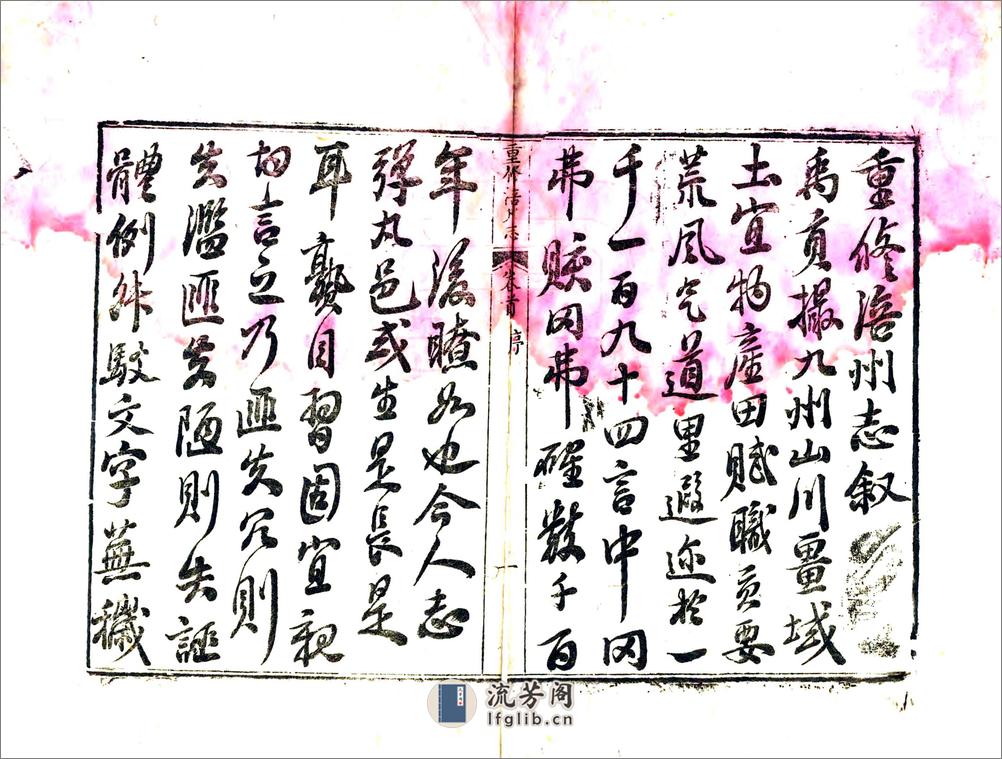 重修涪州志叙
禹貢撮九州山川畺域
土宜物産田賦職貢要
荒風气道里遐迩於一
千一百九十四言中罔
弗賅罔弗確数千百
重修涪州志
卷首
序
一
年後瞭如也今人志
彈丸邑或生是長是
耳聾目習固宜親
切言之乃匪失冗則
失濫匪失陋則失誣
體例舛駁文字蕪穢
流芳阁
lfglib.cn